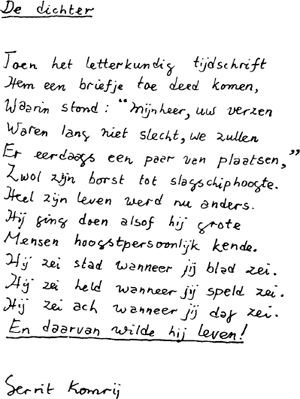 De dichter
Toen het letterkundig tijdschrift
Hem een briefje toe deed komen,
Waarin stond: "Mijnheer, uw verzen
Waren lang niet slecht, we zullen
Er eerdaags een paar van plaatsen,"
Zwol zijn borst tot slagschiphoogte.
Heel zijn leven werd nu anders.
Hij ging doen alsof hij grote
Mensen hoogstpersoonlijk kende.
Hij zei stad wanneer jij blad zei.
Hij zei held wanneer jij speld zei.
Hij zei ach wanneer jij dag zei.
En daarvan wilde hij leven!
Gerrit Komrij